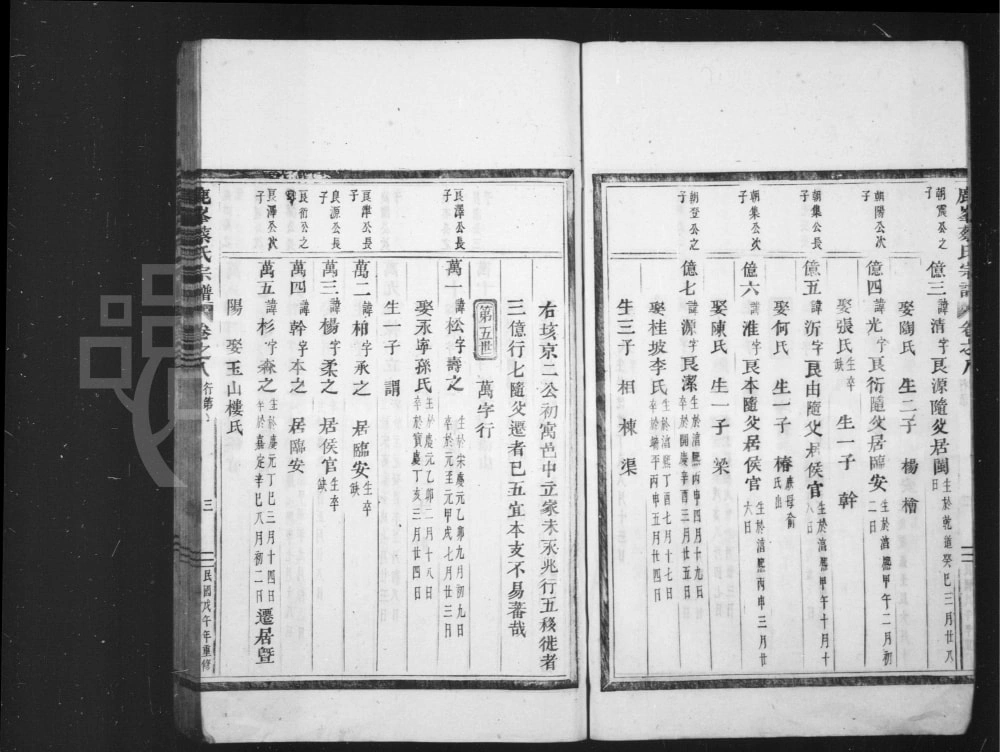 鹿峯蔡氏宗譜 卷之八
朝震公之子 億三 諱清字良源隨父居閩 生於乾道癸巳三月廿八日
娶陶氏 生二子 楊 檜
朝陽公次子 億四 諱光字良衍隨父居臨安 生於淳熙甲午二月初二日
娶張氏 生卒缺 生一子 幹
朝集公長子 億五 諱沂字良由隨父居侯官 生於淳熙甲午十月十八日
娶何氏 生一子 椿 庶母俞氏出
朝集公次子 億六 諱淮字良本隨父居侯官 生於淳熙丙申三月廿六日
娶陳氏 生一子 梁
朝登公之子 億七 諱源字良潔 生於淳熙丙申四月十九日 卒於開慶辛酉三月廿五日
娶桂坡李氏 生於淳熙丁酉七月十七日 卒於端平丙申五月廿四日
生三子 相 棟 渠
右垓京二公初寓邑中立家未永兆行五移徙者
三億行七隨父遷者已五宜本支不易蕃哉
第五世 萬字行
良澤公長子 萬一 諱松字壽之 生於宋慶元乙卯九月初九日 卒於元至元甲戌七月廿三日
娶永寧孫氏 生於慶元乙卯二月十八日 卒於寶慶丁亥三月廿四日
生一子 謂
良準公長子 萬二 諱柏字承之 居臨安 生卒缺
良源公長子 萬三 諱楊字柔之 居侯官 生卒缺
良衍公之子 萬四 諱幹字本之 居臨安
良澤公次子 萬五 諱杉字森之 生於慶元丁巳三月十四日 卒於嘉定辛巳八月初二日 遷居暨
陽 娶玉山樓氏
鹿峯蔡氏宗譜 卷之八 行第 三 民國戊午年重修